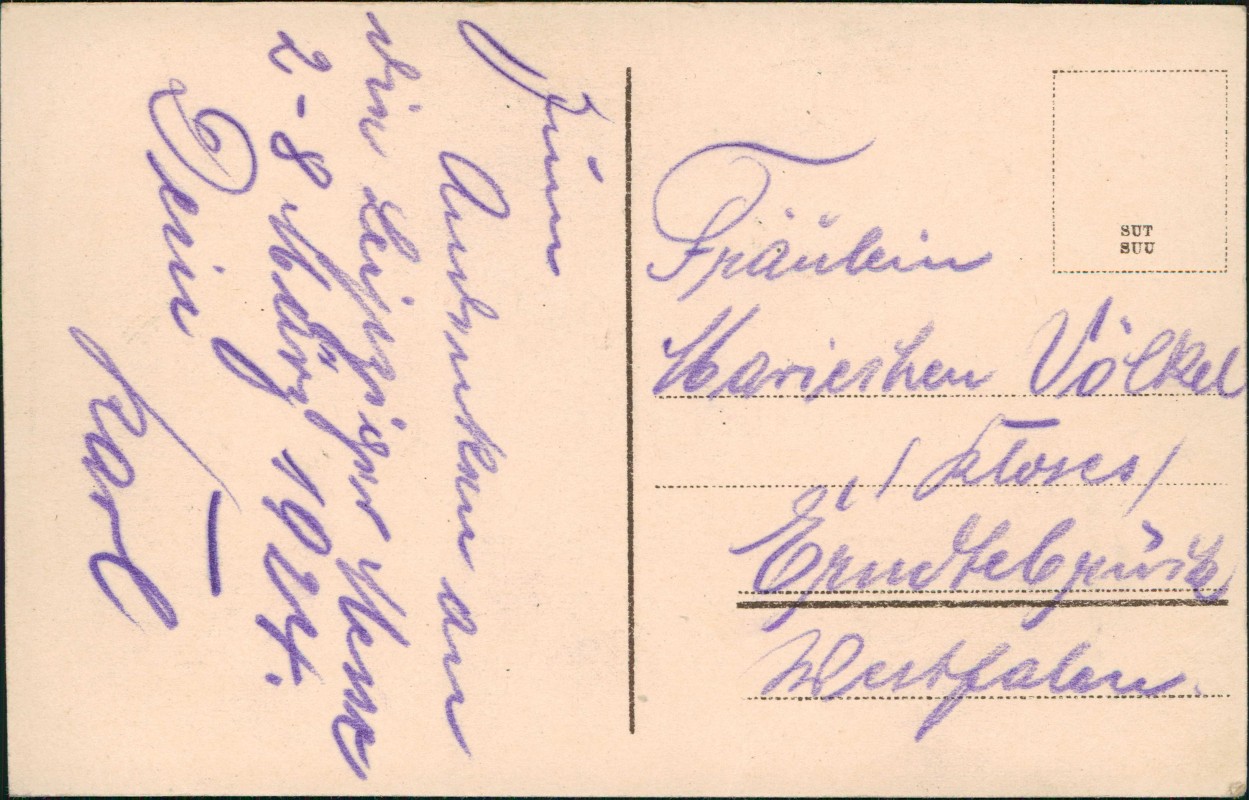 Zum
Andenken an
die Leipziger Messe
2-8 März 1924.
Dein
Karl
SUT
SUU
Fräulein
Mariechen Völkel
/ Kloses /
Erndtebrück
Westfalen.